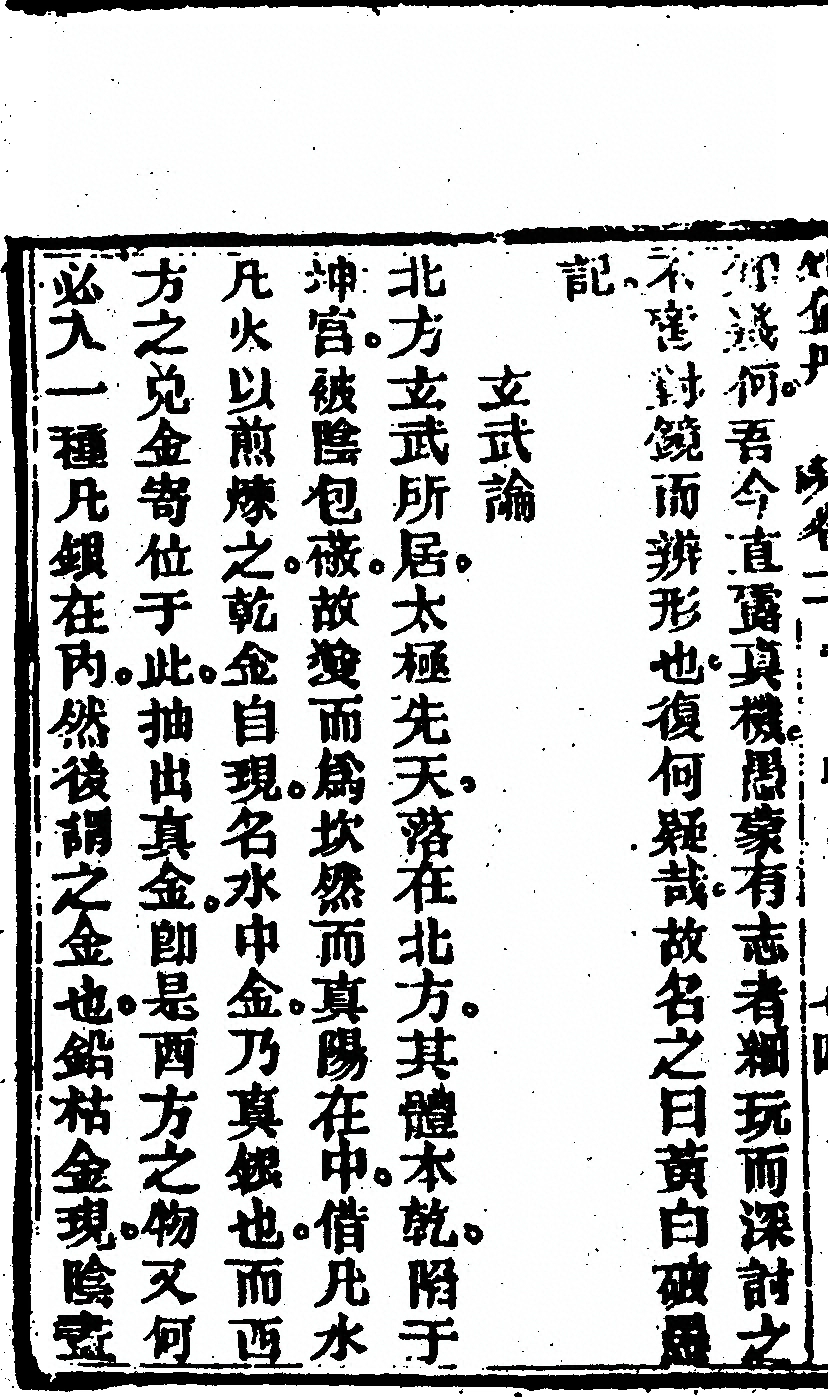 何。吾今直露真機。愚蒙有志者細玩而深討之
不啻對鏡而辨形也。復何疑哉。故名之曰黃白破愚
記。
玄武論
北方玄武所居。太極先天。落在北方。其體本乾。陷于
坤宮。被陰包蔽。故變而為坎然而真陽在中。借凡水
凡火以煎煉之。乾金自現。名水中金。乃真鉛也。而西
方之兌金寄位于此。抽出真金。卽是西方之物又何
必入一種凡銀在內。然後謂之金也。鉛枯金現。陰盡